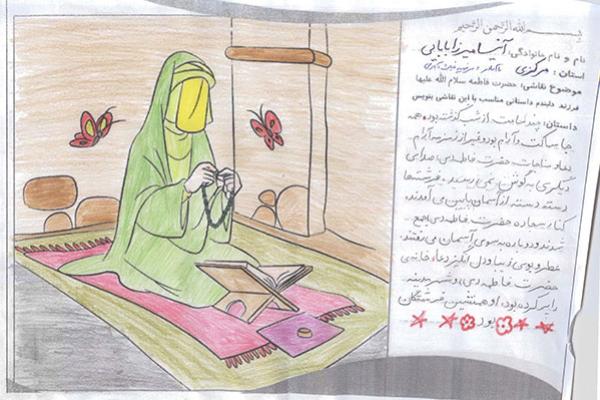 بسم الله الرحمن الرحیم
نام و نام خانوادگی: آنیسا میرزابابایی
استان: مرکزی
موضوع نقاشی: حضرت فاطمه سلام الله علیها
فرزند دلبندم داستانی مناسب با این نقاشی بنویس
داستان: چند ساعت از شب گذشته بود، همه
جا ساکت و آرام بود و غیر از زمزمه آرام
دعا و مناجات حضرت فاطمه(س) صدای
دیگری به گوش نمی رسید. فرشته‌ها
دسته دسته از آسمان پایین می آمدند
کنار سجاده حضرت فاطمه(س) جمع
شدند و دوباره به سوی آسمان می رفتند
عطر و بوی زیبا و دل انگیز دعا، خانه‌ی
حضرت فاطمه(س) و شهر مدینه
را پر کرده بود، او همنشین فرشتگان
بود